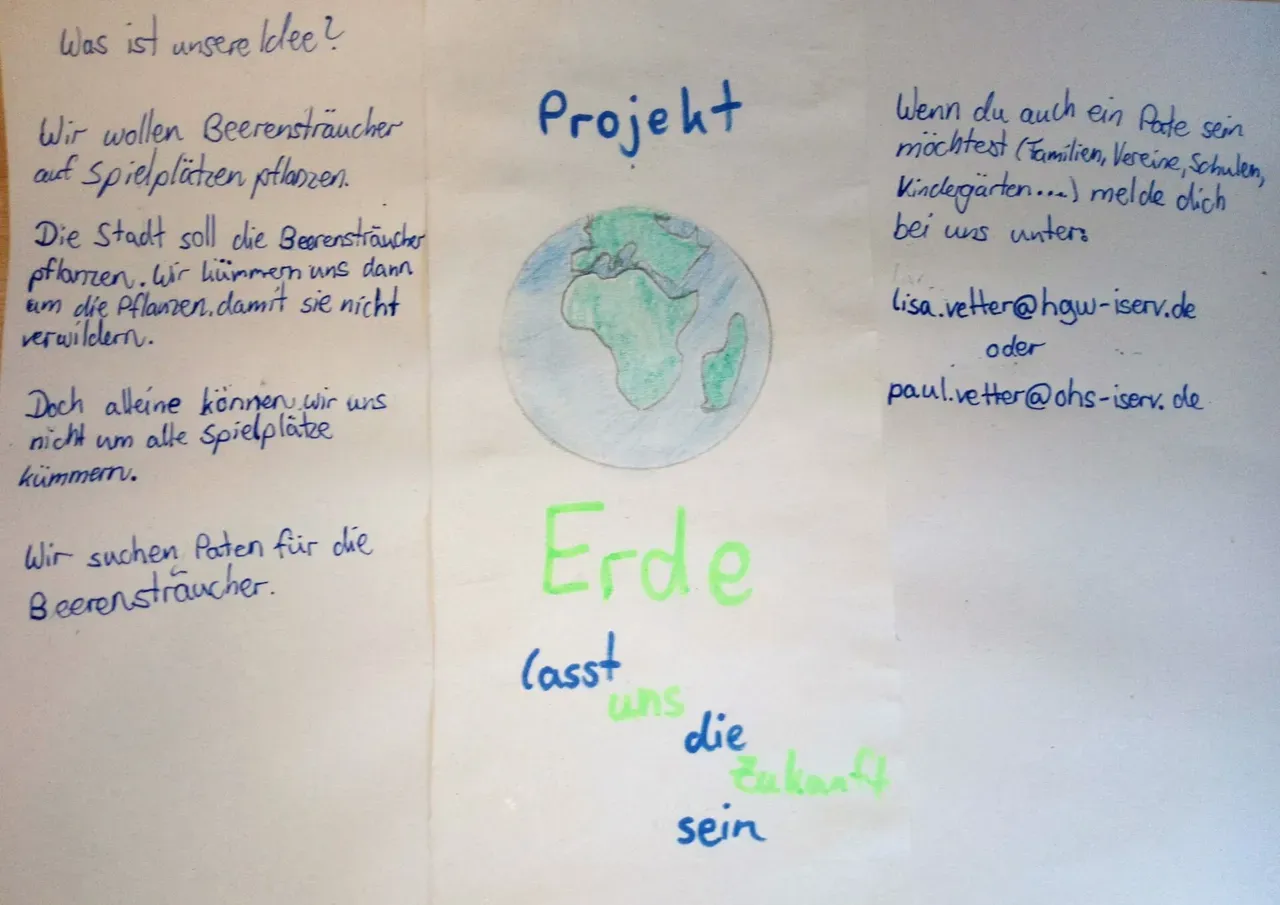 Was ist unsere Idee?
Wir wollen Beerensträucher
auf Spielplätzen pflanzen.
Die Stadt soll die Beerensträucher
pflanzen. Wir kümmern uns dann
um die Pflanzen, damit sie nicht
verwildern.
Doch alleine können wir uns
nicht um alle Spielplätze
kümmern.
Wir suchen Paten für die
Beerensträucher.
Projekt
Erde
lasst
uns
die
Zukunft
sein
Wenn du auch ein Pate sein
möchtest (Familien, Vereine, Schulen,
Kindergärten...) melde dich
bei uns unter:
lisa.vetter@hgw-iserv.de
oder
paul.vetter@ohs-iserv.de